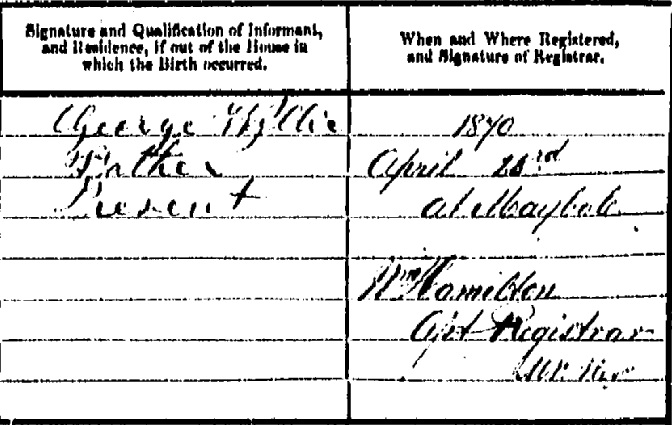 Signature and Qualification of Informant,
and Residence, if out of the House in
which the Birth occurred.
When and Where Registered,
and Signature of Registrar.
George Wyllie
Father
Present
1870
April 23rd
at Maybole
Wm Hamilton
Asst Registrar